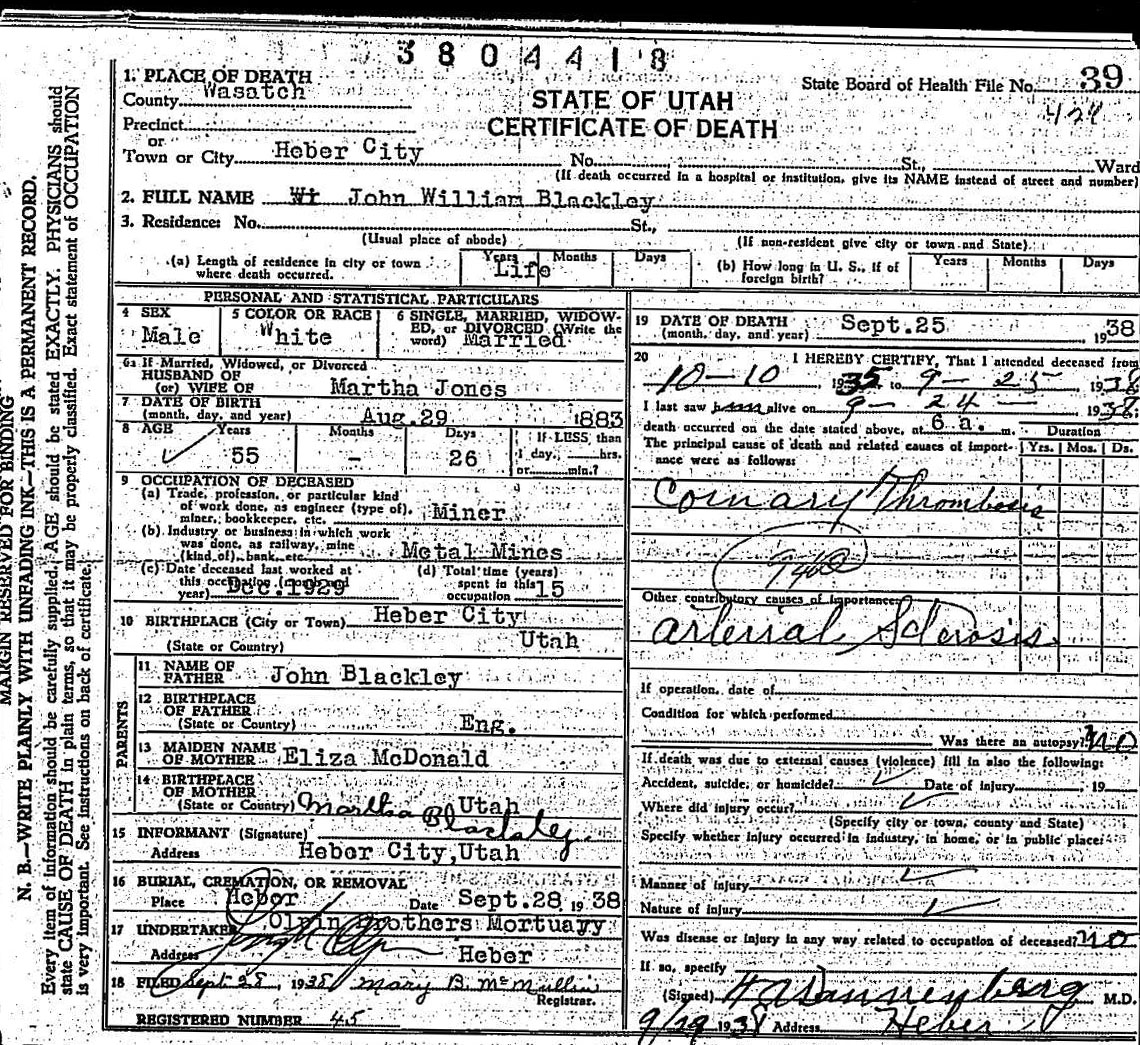 3804418
State Board of Health File No. 39
424
STATE OF UTAH
CERTIFICATE OF DEATH
1. PLACE OF DEATH
County Wasatch
Precinct
or
Town or City Heber City No. St., Ward
(If death occurred in a hospital or institution, give its NAME instead of street and number)
2. FULL NAME Wi John William Blackley
3. Residence: No. St.,
(Usual place of abode) (If non-resident give city or town and State)
(a) Length of residence in city or town where death occurred. Years Months Days
Life
(b) How long in U. S., if of foreign birth? Years Months Days
PERSONAL AND STATISTICAL PARTICULARS
4 SEX
Male
5 COLOR OR RACE
White
6 SINGLE, MARRIED, WIDOW-
ED, or DIVORCED (Write the
word) Married
6a If Married, Widowed, or Divorced
HUSBAND OF
(or) WIFE OF Martha Jones
7 DATE OF BIRTH
(month, day, and year) Aug.29 1883
8 AGE Years Months Days If LESS, than
1 day, hrs.
or min.?
55 - 26
9 OCCUPATION OF DECEASED
(a) Trade, profession, or particular kind
of work done, as engineer (type of),
miner, bookkeeper, etc. Miner
(b) Industry or business in which work
was done, as railway, mine
(kind of), bank, etc. Metal Mines
(c) Date deceased last worked at
this occupation (month and
year) Dec.1929
(d) Total time (years)
spent in this
occupation 15
10 BIRTHPLACE (City or Town) Heber City
(State or Country) Utah
PARENTS
11 NAME OF
FATHER John Blackley
12 BIRTHPLACE
OF FATHER
(State or Country) Eng.
13 MAIDEN NAME
OF MOTHER Eliza McDonald
14 BIRTHPLACE
OF MOTHER
(State or Country) Utah
15 INFORMANT (Signature) Martha Blackley
Address Heber City,Utah
16 BURIAL, CREMATION, OR REMOVAL
Place Heber Date Sept.28 19 38
17 UNDERTAKER Olpin Brothers Mortuary
Address Heber
18 FILED Sept 28, 1938 Mary B. McMullin
Registrar.
REGISTERED NUMBER 45
19 DATE OF DEATH
(month, day, and year) Sept.25 1938
20 I HEREBY CERTIFY, That I attended deceased from
10-10 1935 to 9-25-, 1938
I last saw him alive on 9-24- 1938,
death occurred on the date stated above, at 6 a. m.
The principal cause of death and related causes of import-
ance were as follows:
Duration
Yrs. Mos. Ds.
Coronary Thrombosis
Other contributory causes of importance:
Arterial Sclerosis
If operation, date of
Condition for which performed
Was there an autopsy? No
If death was due to external causes (violence) fill in also the following:
Accident, suicide, or homicide? Date of injury, 19
Where did injury occur?
(Specify city or town, county and State)
Specify whether injury occurred in industry, in home, or in public place:
Manner of Injury
Nature of Injury
Was disease or injury in any way related to occupation of deceased? no
If so, specify
(Signed) M.D.
9/29 1938 Address Heber
MARGIN RESERVED FOR BINDING
N. B.—WRITE PLAINLY WITH UNFADING INK—THIS IS A PERMANENT RECORD.
Every item of information should be carefully supplied. AGE should be stated EXACTLY. PHYSICIANS should
state CAUSE OF DEATH in plain terms, so that it may be properly classified. Exact statement of OCCUPATION
is very important. See instructions on back of certificate.